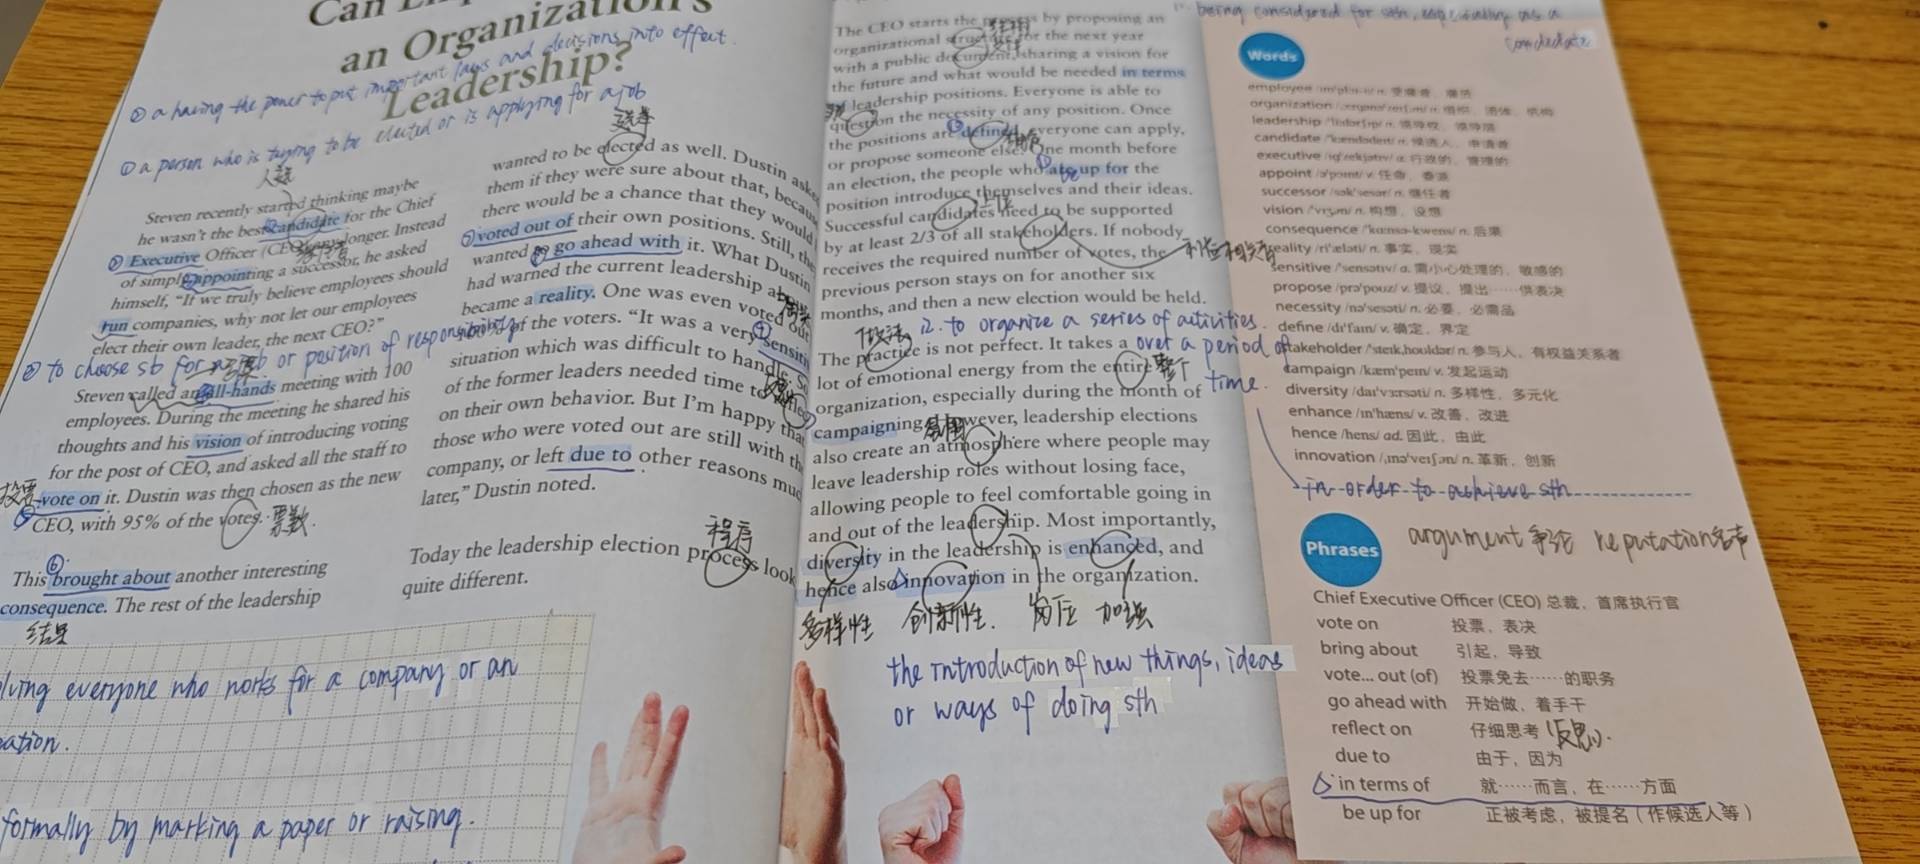 an Organization's
Leadership?
② a having the power to put important laws and decisions into effect.
① a person who is trying to be elected or is applying for a job
人选
Steven recently started thinking maybe
he wasn't the best candidate for the Chief
Executive Officer (CEO) any longer. Instead
of simply appointing a successor, he asked
himself, "If we truly believe employees should
run companies, why not let our employees
elect their own leader, the next CEO?"
to choose sb for a job or position of responsibility
Steven called an all-hands meeting with 100
employees. During the meeting he shared his
thoughts and his vision of introducing voting
for the post of CEO, and asked all the staff to
投票 vote on it. Dustin was then chosen as the new
CEO, with 95% of the votes. 票数.
This brought about another interesting
⑥
consequence. The rest of the leadership
结果
lving everyone who works for a company or an
ation.
formally by marking a paper or raising.
选举
wanted to be elected as well. Dustin aske
them if they were sure about that, becau
there would be a chance that they would
voted out of their own positions. Still, the
wanted to go ahead with it. What Dustin
had warned the current leadership
became a reality. One was even voted out
of the voters. "It was a very sensiti
situation which was difficult to handle. So
of the former leaders needed time to
on their own behavior. But I'm happy tha
those who were voted out are still with th
company, or left due to other reasons muc
later," Dustin noted.
程序
Today the leadership election process look
quite different.
The CEO starts the process by proposing an
organizational structure for the next year
with a public document, sharing a vision for
the future and what would be needed in terms
of leadership positions. Everyone is able to
question the necessity of any position. Once
the positions are defined, everyone can apply,
or propose someone else. One month before
an election, the people who are up for the
position introduce themselves and their ideas.
Successful candidates need to be supported
by at least 2/3 of all stakeholders. If nobody
receives the required number of votes, the
利益相关者
previous person stays on for another six
months, and then a new election would be held.
做法 12. to organize a series of activities
The practice is not perfect. It takes a
over a period of
lot of emotional energy from the entire
整个 time.
organization, especially during the month of
campaigning. However, leadership elections
氛围
also create an atmosphere where people may
leave leadership roles without losing face,
allowing people to feel comfortable going in
and out of the leadership. Most importantly,
diversity in the leadership is enhanced, and
hence also innovation in the organization.
多样性 创新性. 岗位 加强
the introduction of new things, ideas
or ways of doing sth
being considered for sth, especially as a
candidate
Words
organization
leadership
candidate n. 候选人,申请者
executive a. 行政的,管理的
appoint v. 任命,委派
successor n. 继任者
vision n. 构想,设想
consequence n. 后果
reality n. 事实,现实
sensitive a. 需小心处理的,敏感的
propose v. 提议,提出……供表决
necessity n. 必要,必需品
define v. 确定,界定
takeholder n. 参与人,有权益关系者
campaign v. 发起运动
diversity n. 多样性,多元化
enhance v. 改善,改进
hence /hens/ ad. 因此,由此
innovation n. 革新,创新
in order to achieve sth
Phrases
argument 争论 reputation 名声
Chief Executive Officer (CEO) 总裁,首席执行官
vote on 投票,表决
bring about 引起,导致
vote... out (of) 投票免去……的职务
go ahead with 开始做,着手干
reflect on 仔细思考 (反思).
due to 由于,因为
in terms of 就……而言,在……方面
be up for 正被考虑,被提名(作候选人等)